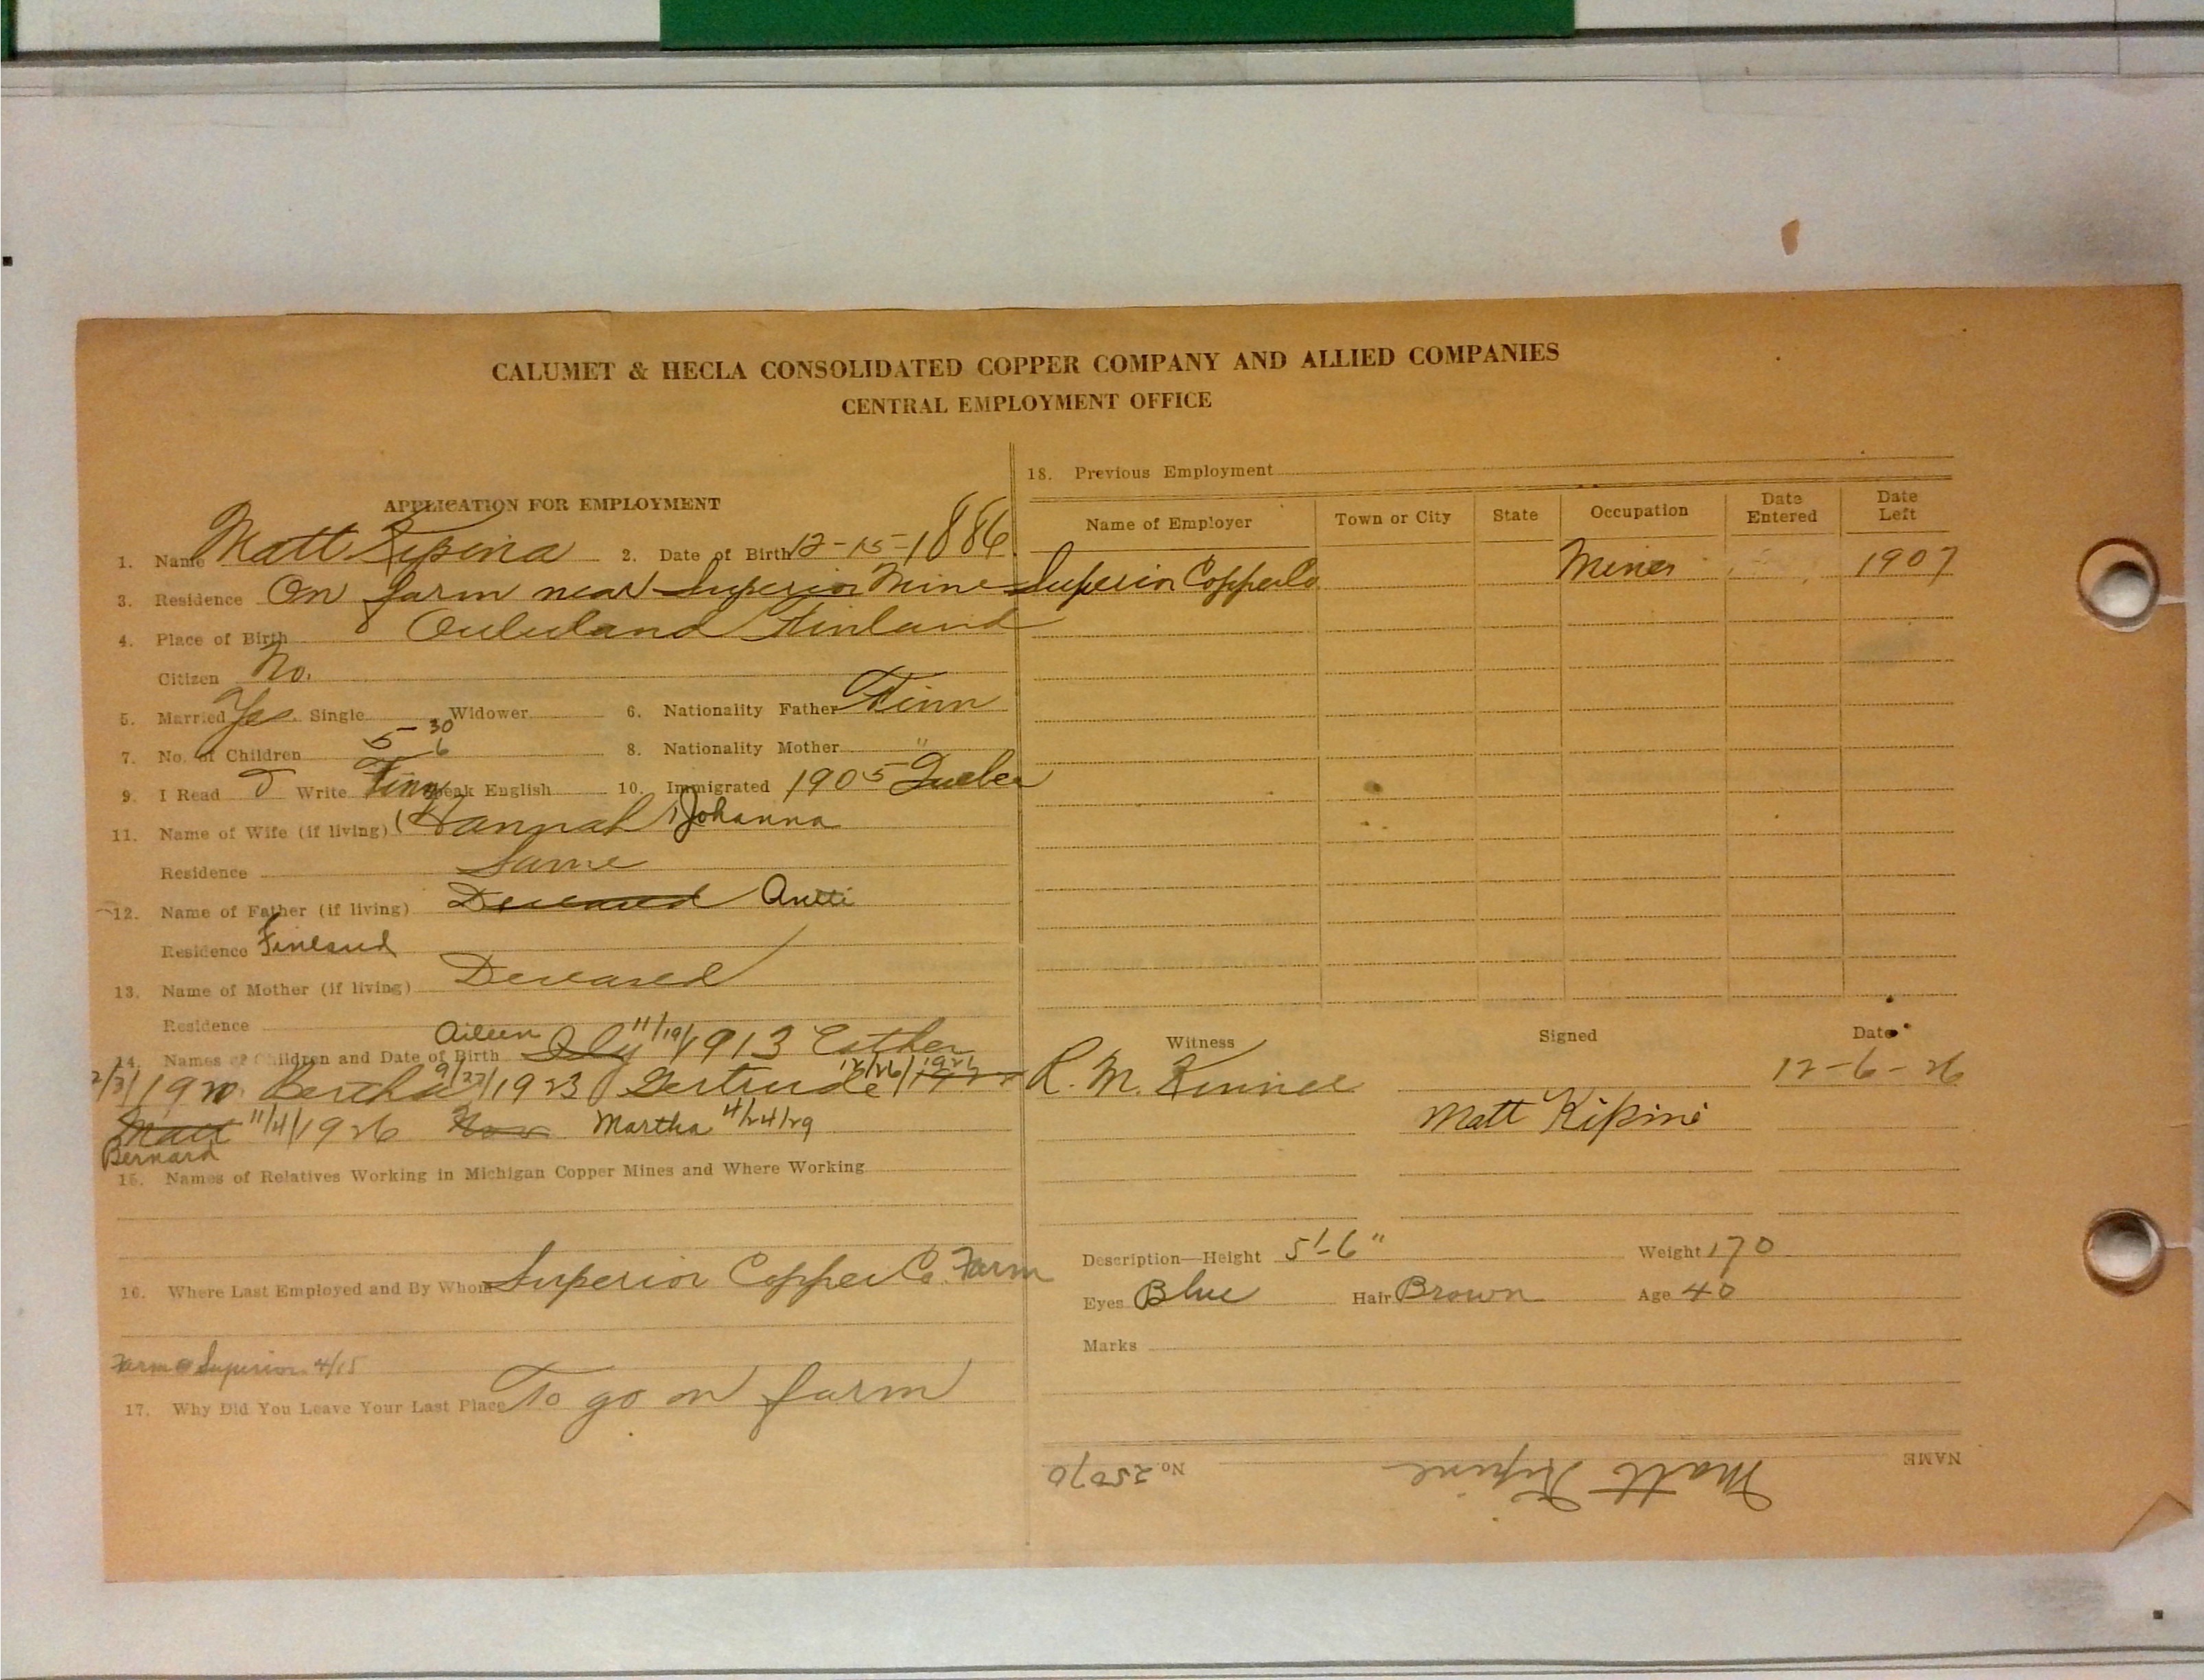 CALUMET & HECLA CONSOLIDATED COPPER COMPANY AND ALLIED COMPANIES
CENTRAL EMPLOYMENT OFFICE
APPLICATION FOR EMPLOYMENT
1. Name Matt Kipina 2. Date of Birth 12-15-1886
3. Residence On farm near Superior Mine
4. Place of Birth Oululand Finland
Citizen No.
5. Married Yes Single Widower 6. Nationality Father Finn
7. No. of Children 5 6 30 8. Nationality Mother "
9. I Read Write Finn Speak English 10. Immigrated 1905 Quebec
11. Name of Wife (if living) (Hannah) Johanna
Residence Same
12. Name of Father (if living) Deceased Antti
Residence Finland
13. Name of Mother (if living) Deceased
Residence
14. Names of Children and Date of Birth Aileen 11/19/1913 Esther
2/3/1920. Bertha 9/27/1923 Gertrude 12/26/1921
Matt 11/4/1926 Martha 4/24/29
Bernard
15. Names of Relatives Working in Michigan Copper Mines and Where Working
16. Where Last Employed and By Whom Superior Copper Co. Farm
Farm Superior 4/15
17. Why Did You Leave Your Last Place To go on farm
18. Previous Employment
Name of Employer Town or City State Occupation Date Entered Date Left
Superior Copper Co. Miner 1907
Witness Signed Date
R. M. 12-6-26
Matt Kipini
Description—Height 5'-6" Weight 170
Eyes Blue Hair Brown Age 40
Marks
NAME Matt Kipine No. 25070